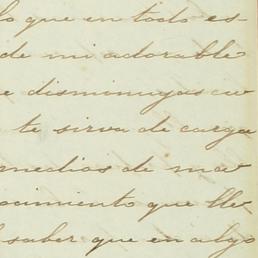 lo que en todo es-
de mi adorable
e disminuyas cu
te sirva de carga
medios de mas
ocimiento que lle-
l saber que en algo